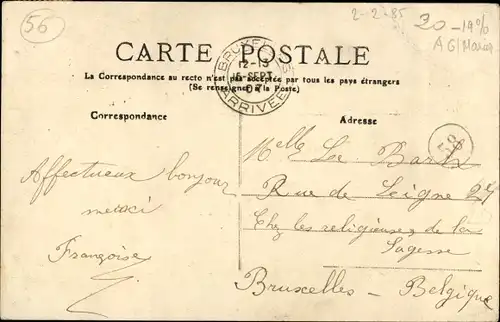 56
2-2-85
30 -14%
CARTE POSTALE
La Correspondance au recto n'est pas acceptée par tous les pays étrangers
(Se renseigner à la Poste)
BRUXEL
12-13
16-SEPT.
07
ARRIVEE
Correspondance
Adresse
Affectueux bonjour
merci
Françoise
Melle Le
Rue de Ligne 27
Chez les religieuses de la
Sagesse
Bruxelles - Belgique